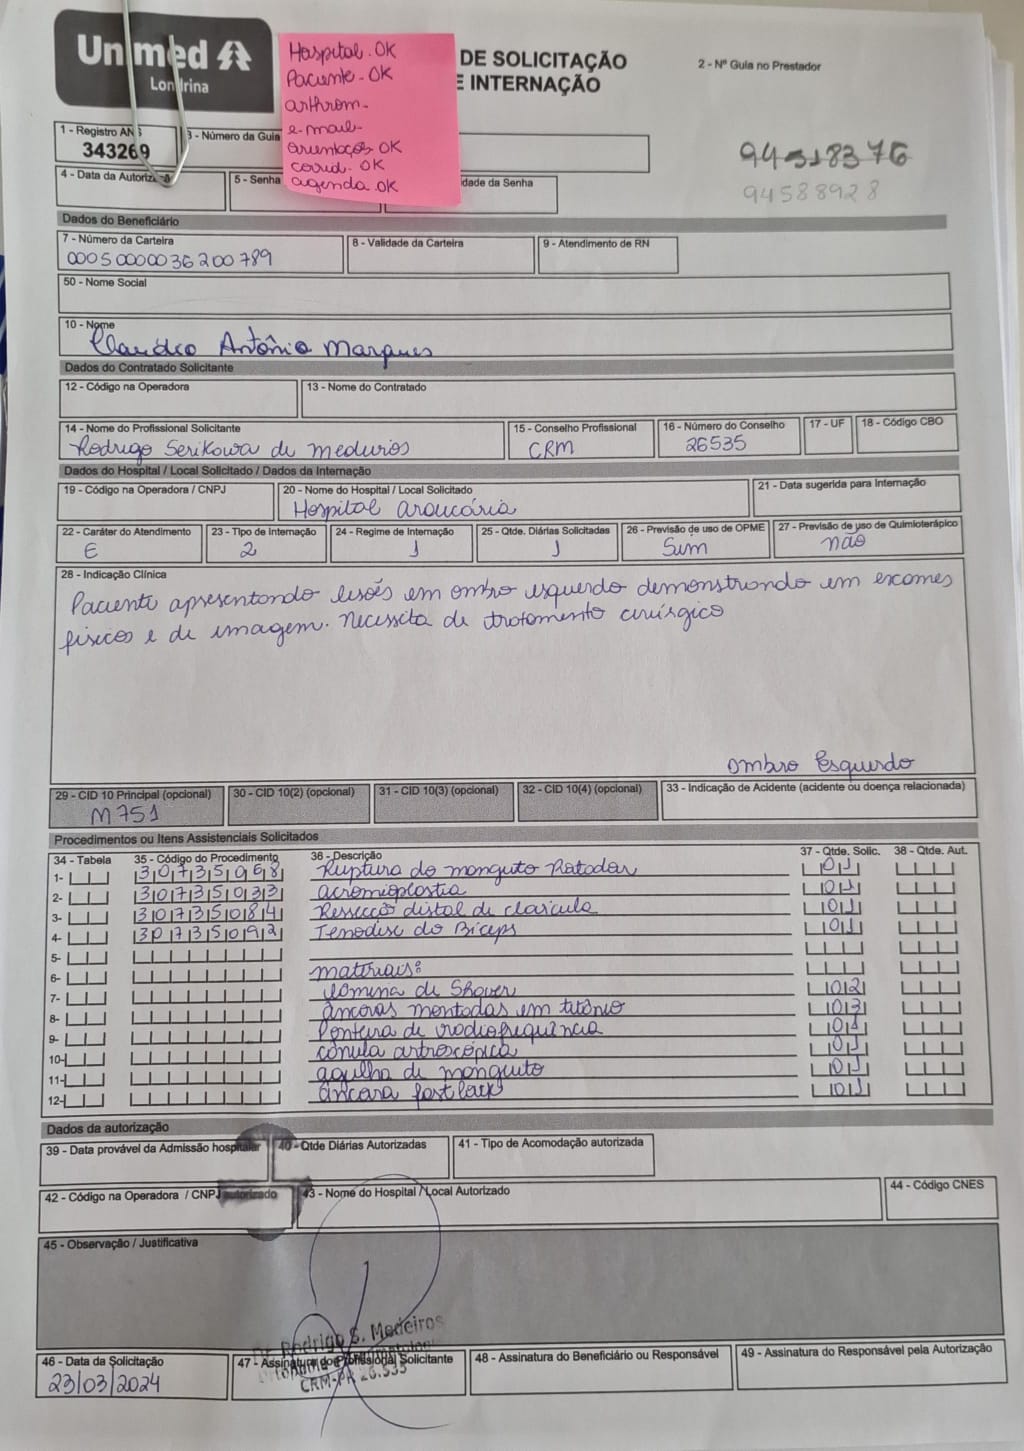 Unimed
Londrina
Hospital. OK
Paciente - OK
arthrom-
e-mail-
orientações OK
covid. OK
agenda. OK
DE SOLICITAÇÃO
E INTERNAÇÃO
2 - Nº Guia no Prestador
1 - Registro ANS
343269
3 - Número da Guia
94318376
94588928
4 - Data da Autoriz
5 - Senha
dade da Senha
Dados do Beneficiário
7 - Número da Carteira
00050000036200789
8 - Validade da Carteira
9 - Atendimento de RN
50 - Nome Social
10 - Nome
Claudio Antônio Marques
Dados do Contratado Solicitante
12 - Código na Operadora
13 - Nome do Contratado
14 - Nome do Profissional Solicitante
Rodrigo Serikawa de Medeiros
15 - Conselho Profissional
CRM
16 - Número do Conselho
26535
17 - UF
18 - Código CBO
Dados do Hospital / Local Solicitado / Dados da Internação
19 - Código na Operadora / CNPJ
20 - Nome do Hospital / Local Solicitado
Hospital Araucária
21 - Data sugerida para Internação
22 - Caráter do Atendimento
E
23 - Tipo de Internação
2
24 - Regime de Internação
1
25 - Qtde. Diárias Solicitadas
1
26 - Previsão de uso de OPME
Sim
27 - Previsão de uso de Quimioterápico
não
28 - Indicação Clínica
Paciente apresentando lesões em ombro esquerdo demonstrando em exames
físicos e de imagem. Necessita de tratamento cirúrgico
Ombro Esquerdo
29 - CID 10 Principal (opcional)
M751
30 - CID 10(2) (opcional)
31 - CID 10(3) (opcional)
32 - CID 10(4) (opcional)
33 - Indicação de Acidente (acidente ou doença relacionada)
Procedimentos ou Itens Assistenciais Solicitados
34 - Tabela 35 - Código do Procedimento 36 - Descrição 37 - Qtde. Solic. 38 - Qtde. Aut.
1- 30735068 Ruptura do manguito Rotador 01
2- 30735033 acromioplastia 01
3- 30735084 Ressecção distal de clavícula 01
4- 30735092 Tenodise do Bíceps 01
5-
6- materiais:
7- lâmina de Shaver 02
8- âncoras montadas em titânio 03
9- Ponteira de radiofrequência 01
10- cânula artroscópica 01
11- agulha de manguito 01
12- âncora fastlack 01
Dados da autorização
39 - Data provável da Admissão hospitalar
40 - Qtde Diárias Autorizadas
41 - Tipo de Acomodação autorizada
42 - Código na Operadora / CNPJ autorizado
43 - Nome do Hospital / Local Autorizado
44 - Código CNES
45 - Observação / Justificativa
Dr. Rodrigo S. Medeiros
CRM-PR 26.535
46 - Data da Solicitação
23/03/2024
47 - Assinatura do Profissional Solicitante
48 - Assinatura do Beneficiário ou Responsável
49 - Assinatura do Responsável pela Autorização